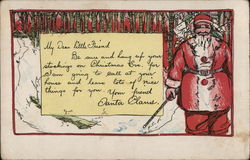 My Dear Little Friend
Be sure and hang up your
stockings on Christmas Eve. for
I am going to call at your
house and leave lots of nice
things for you. Your friend
Santa Claus.